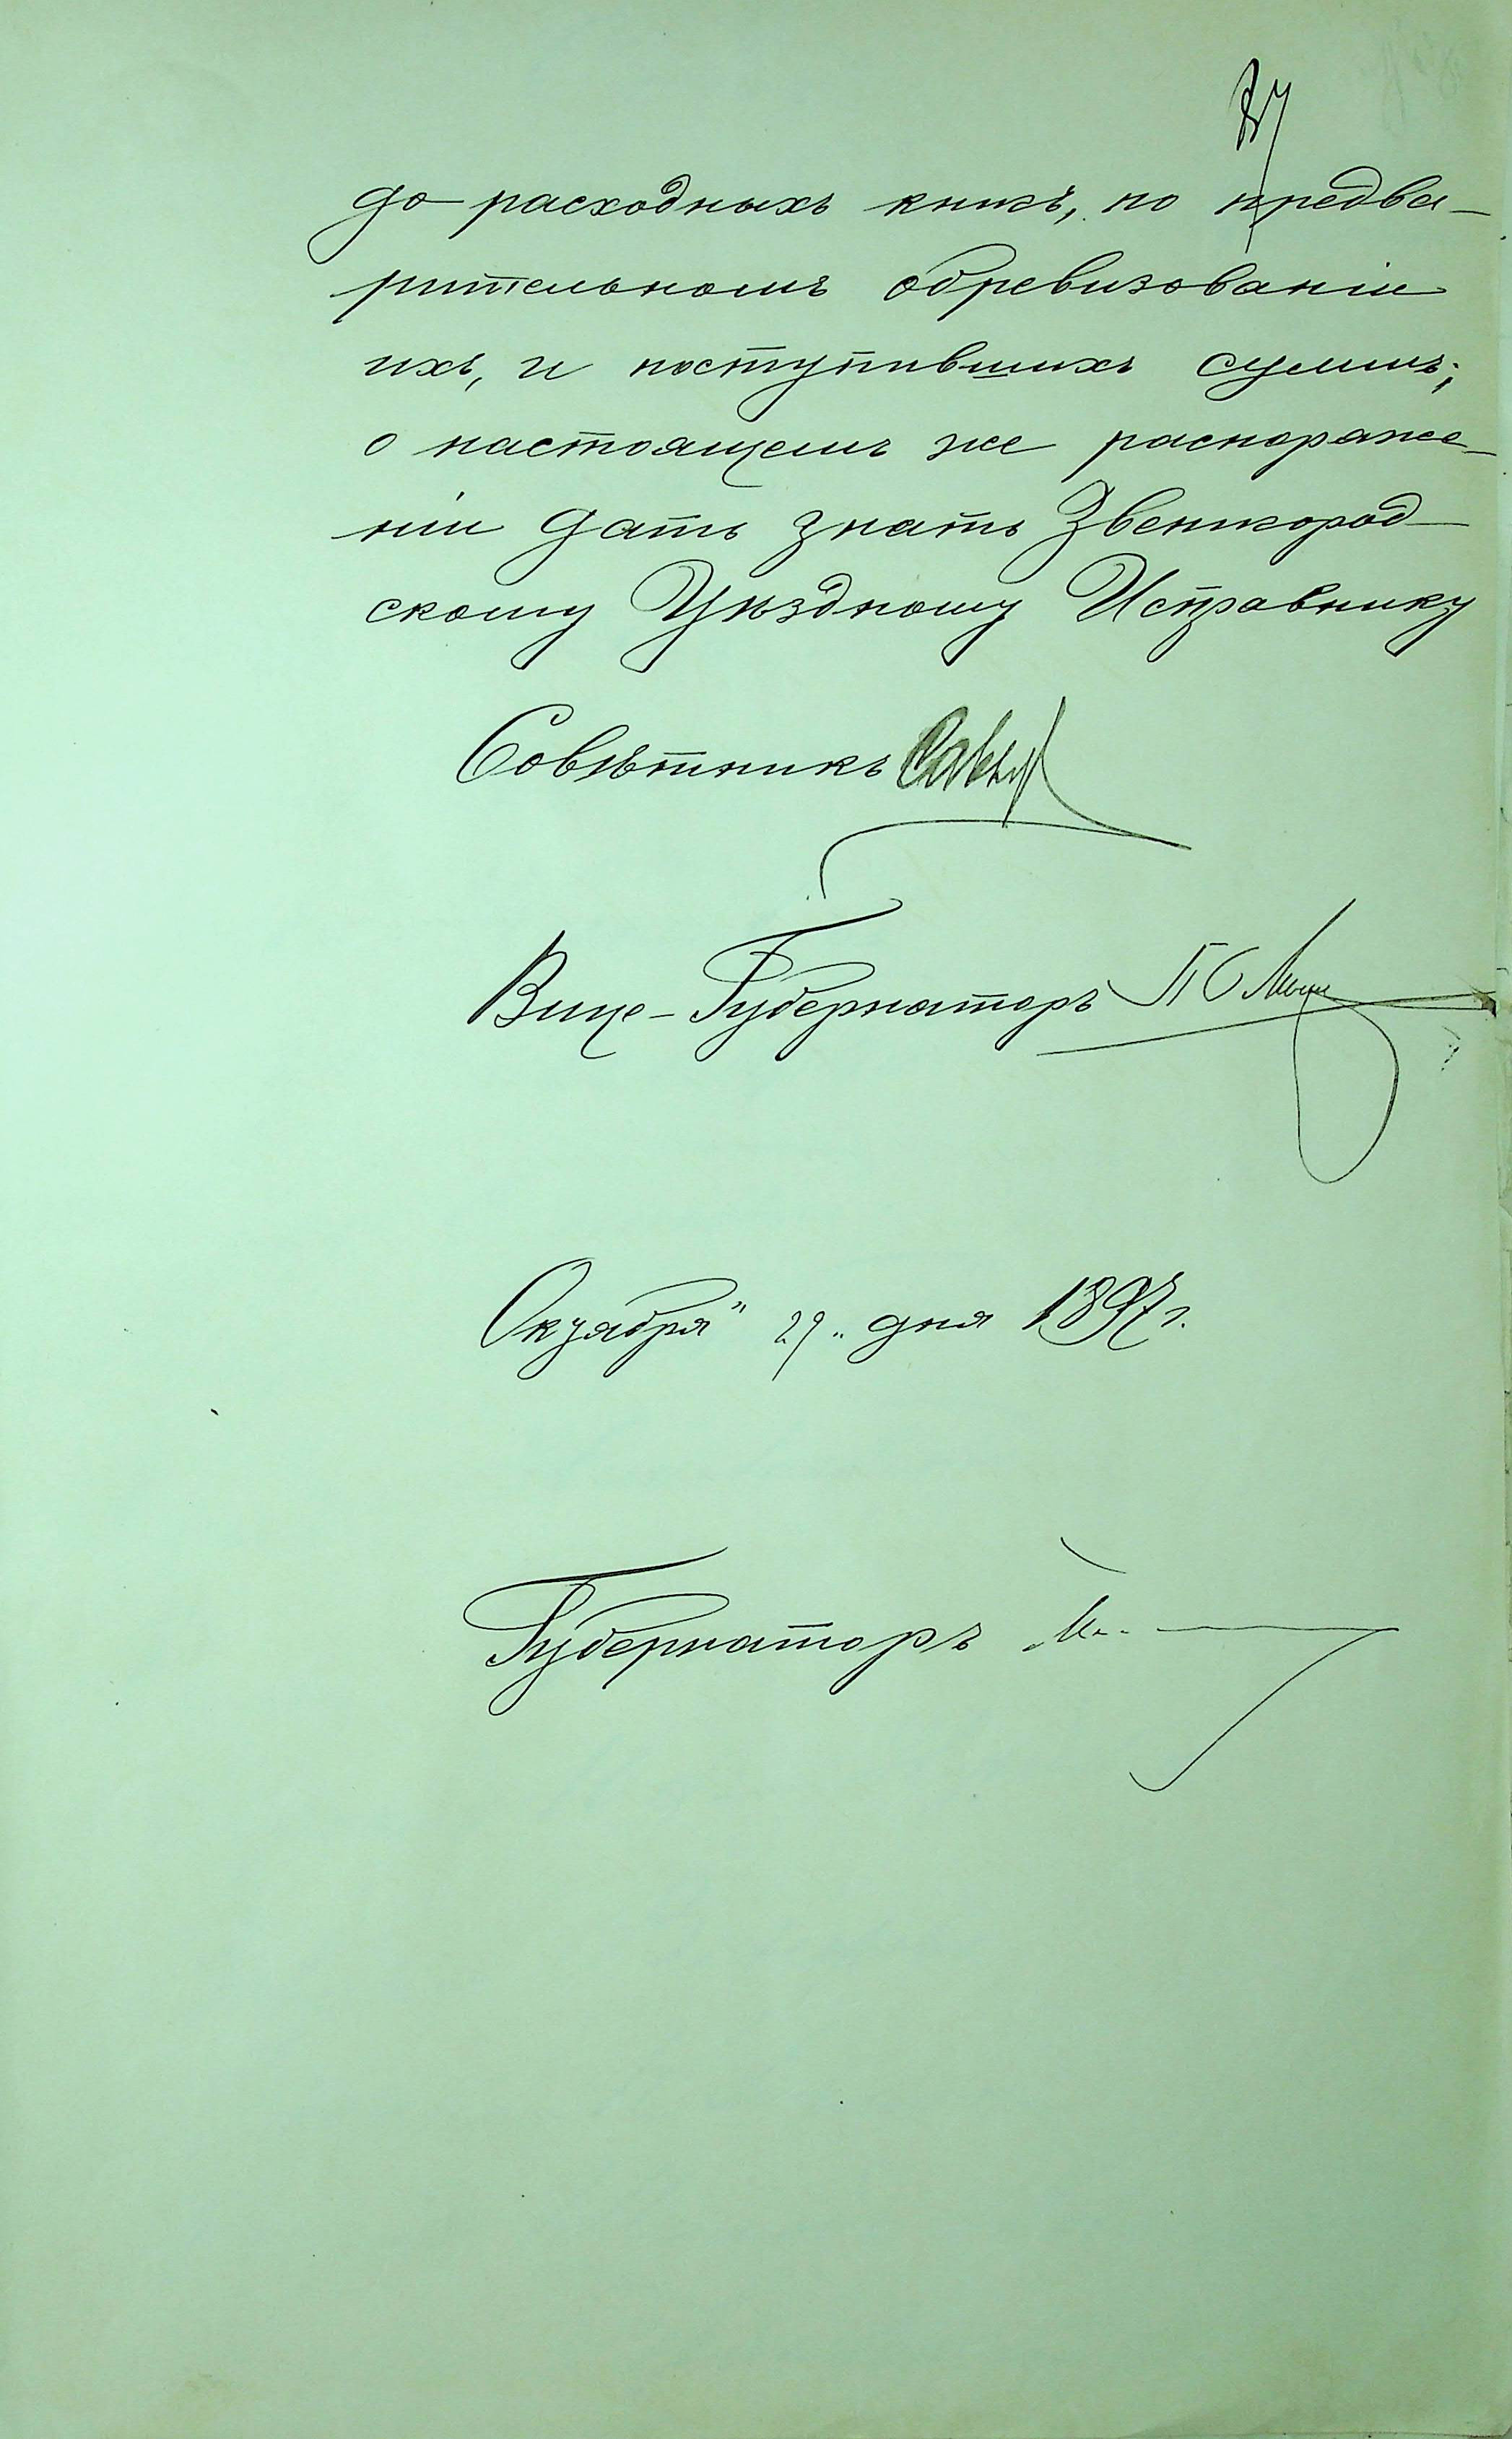 до-расходныхъ книгъ, по предва-
рительномъ обревизованіи
ихъ, и поступившихъ суммъ;
о настоящемъ же распоряже-
ніи дать знать Звенигород-
скому Уѣздному Исправнику
Совѣтникъ
Вице-Губернаторъ
Октября „29„ дня 1897 г.
Губернаторъ